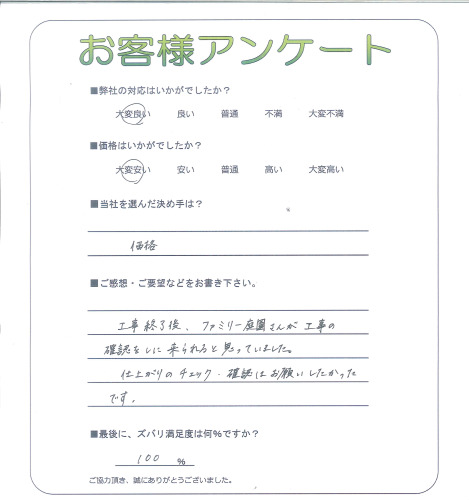 お客様アンケート
■弊社の対応はいかがでしたか？
大変良い 良い 普通 不満 大変不満
■価格はいかがでしたか？
大変安い 安い 普通 高い 大変高い
■当社を選んだ決め手は？
価格
■ご感想・ご要望などをお書き下さい。
工事終了後、ファミリー庭園さんが工事の
確認をしに来られると思っていました。
仕上がりのチェック・確認はお願いしたかった
です。
■最後に、ズバリ満足度は何%ですか？
100 %
ご協力頂き、誠にありがとうございました。